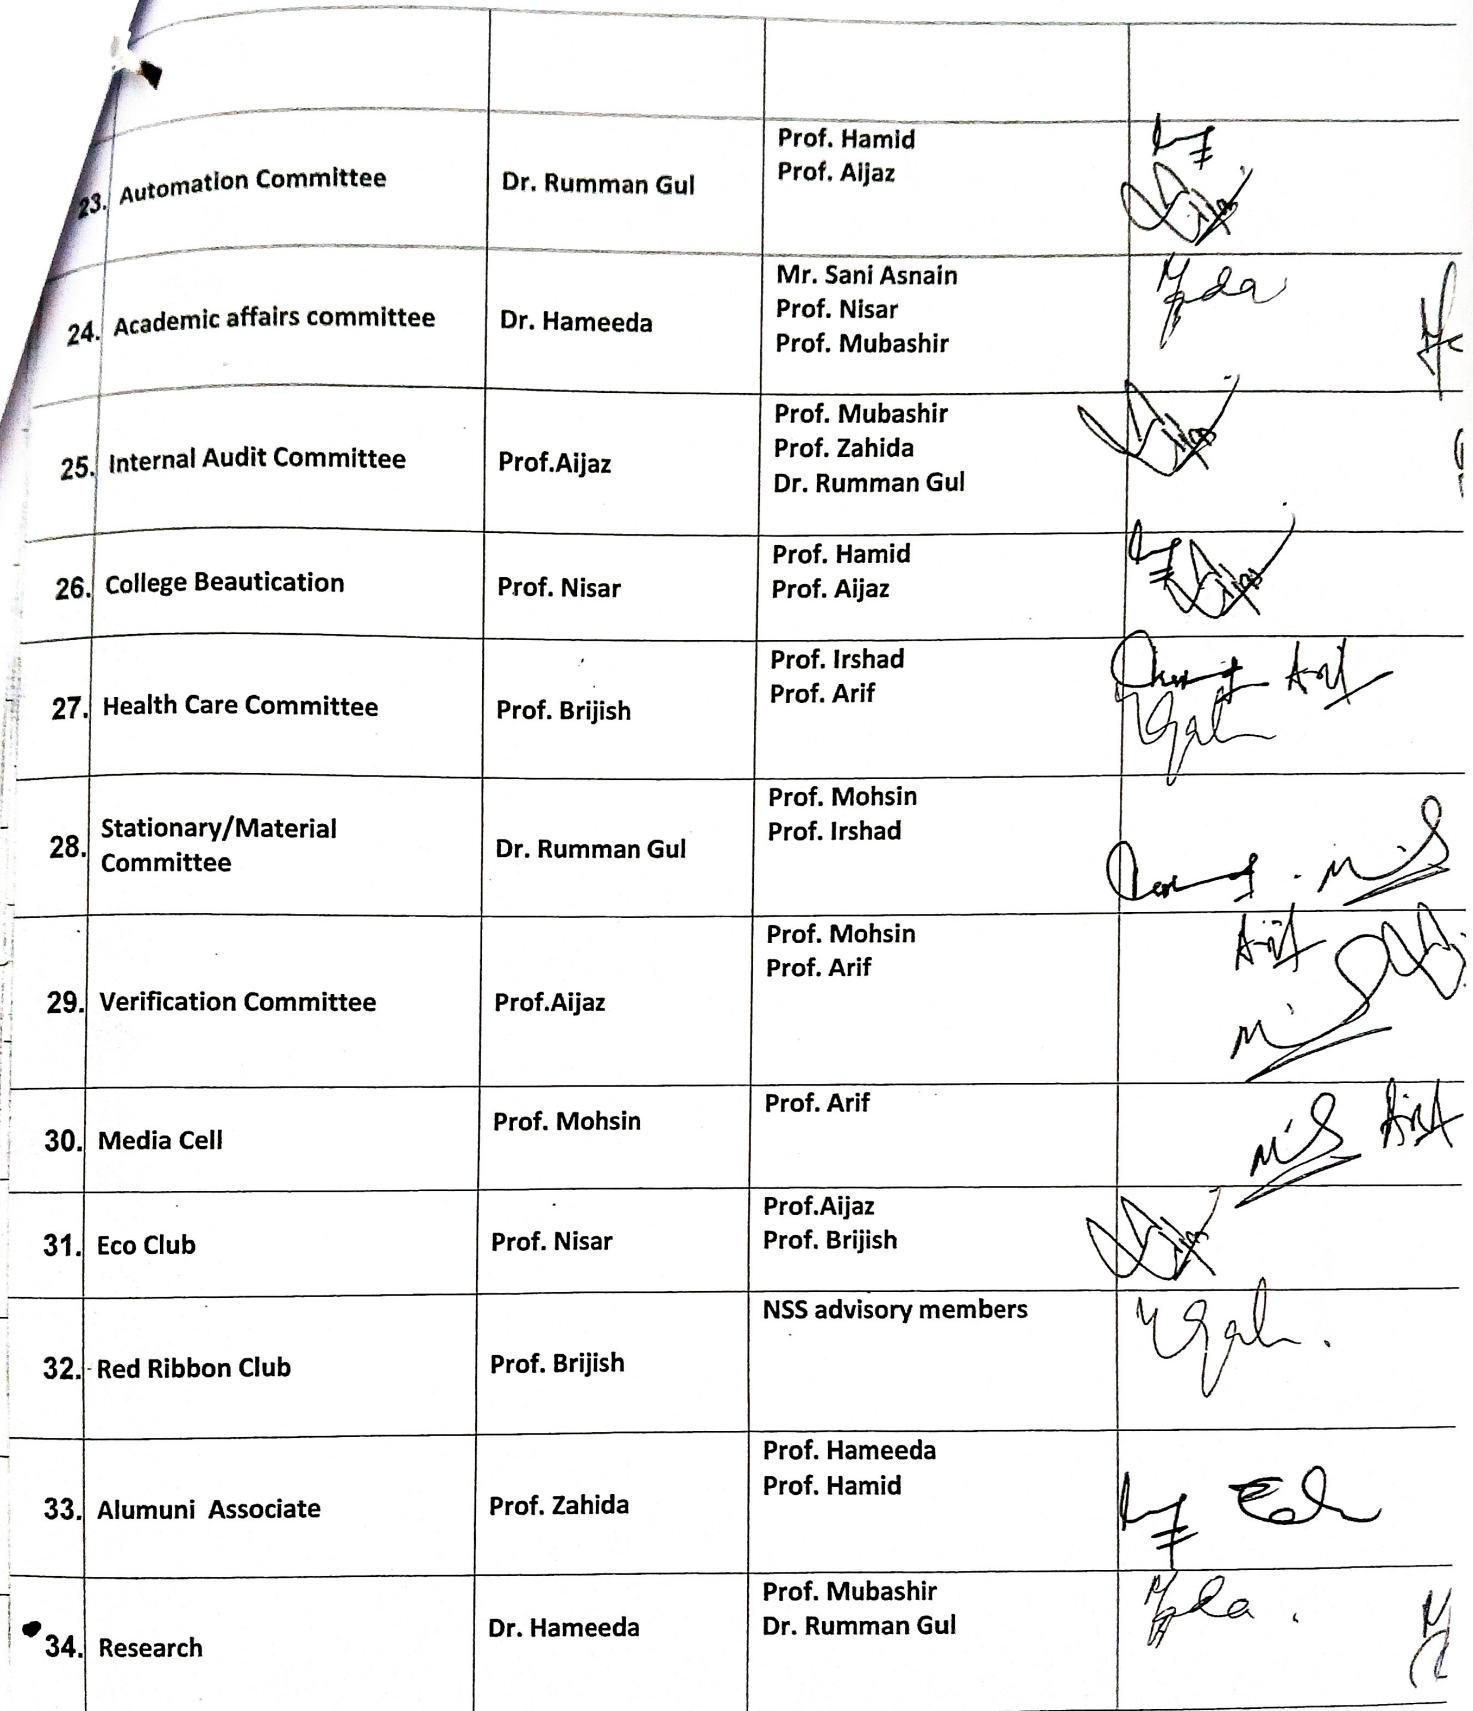 23. Automation Committee
Dr. Rumman Gul
Prof. Hamid
Prof. Aijaz
24. Academic affairs committee
Dr. Hameeda
Mr. Sani Asnain
Prof. Nisar
Prof. Mubashir
25. Internal Audit Committee
Prof.Aijaz
Prof. Mubashir
Prof. Zahida
Dr. Rumman Gul
26. College Beautication
Prof. Nisar
Prof. Hamid
Prof. Aijaz
27. Health Care Committee
Prof. Brijish
Prof. Irshad
Prof. Arif
28. Stationary/Material
Committee
Dr. Rumman Gul
Prof. Mohsin
Prof. Irshad
29. Verification Committee
Prof.Aijaz
Prof. Mohsin
Prof. Arif
30. Media Cell
Prof. Mohsin
Prof. Arif
31. Eco Club
Prof. Nisar
Prof.Aijaz
Prof. Brijish
32. Red Ribbon Club
Prof. Brijish
NSS advisory members
33. Alumuni Associate
Prof. Zahida
Prof. Hameeda
Prof. Hamid
34. Research
Dr. Hameeda
Prof. Mubashir
Dr. Rumman Gul